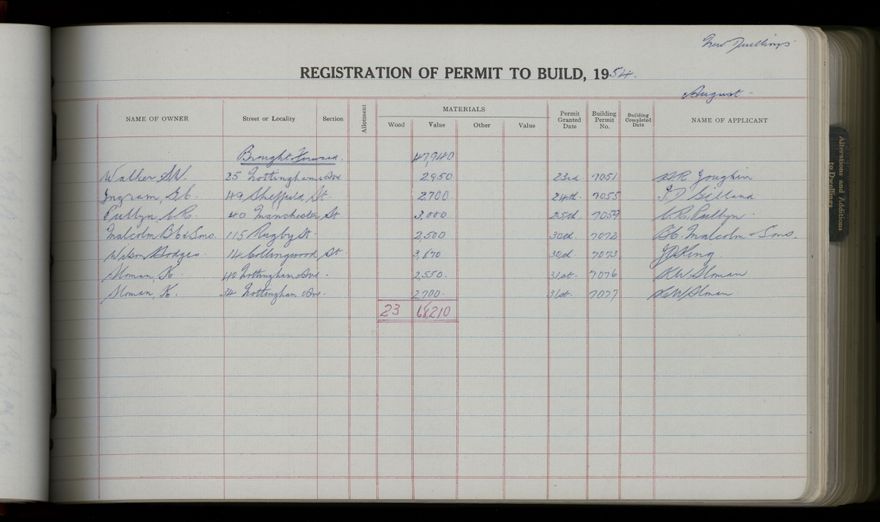 New Dwellings
REGISTRATION OF PERMIT TO BUILD, 1954.
August
NAME OF OWNER Street or Locality Section Allotment MATERIALS Wood Value Other Value Permit Granted Date Building Permit No. Building Completed Date NAME OF APPLICANT
Brought Forward. 47,940
Walker 25 Nottingham Ave 2950 23rd 7051
Ingram, 49 Sheffield St 2700 24th 7055
40 Manchester St 3,000 25th 7059
Malcolm & Sons. 115 Rugby St 2,500 30th 7072 Malcolm & Sons.
Wilson Hodges 14 Collingwood St 30th 7073 King
Sloman, K. 42 Nottingham Ave. 2,550. 31st 7076 Sloman
Sloman, K. 34 Nottingham Ave. 2700 31st 7077 Sloman
23 68,210
Alterations and Additions
to Dwellings